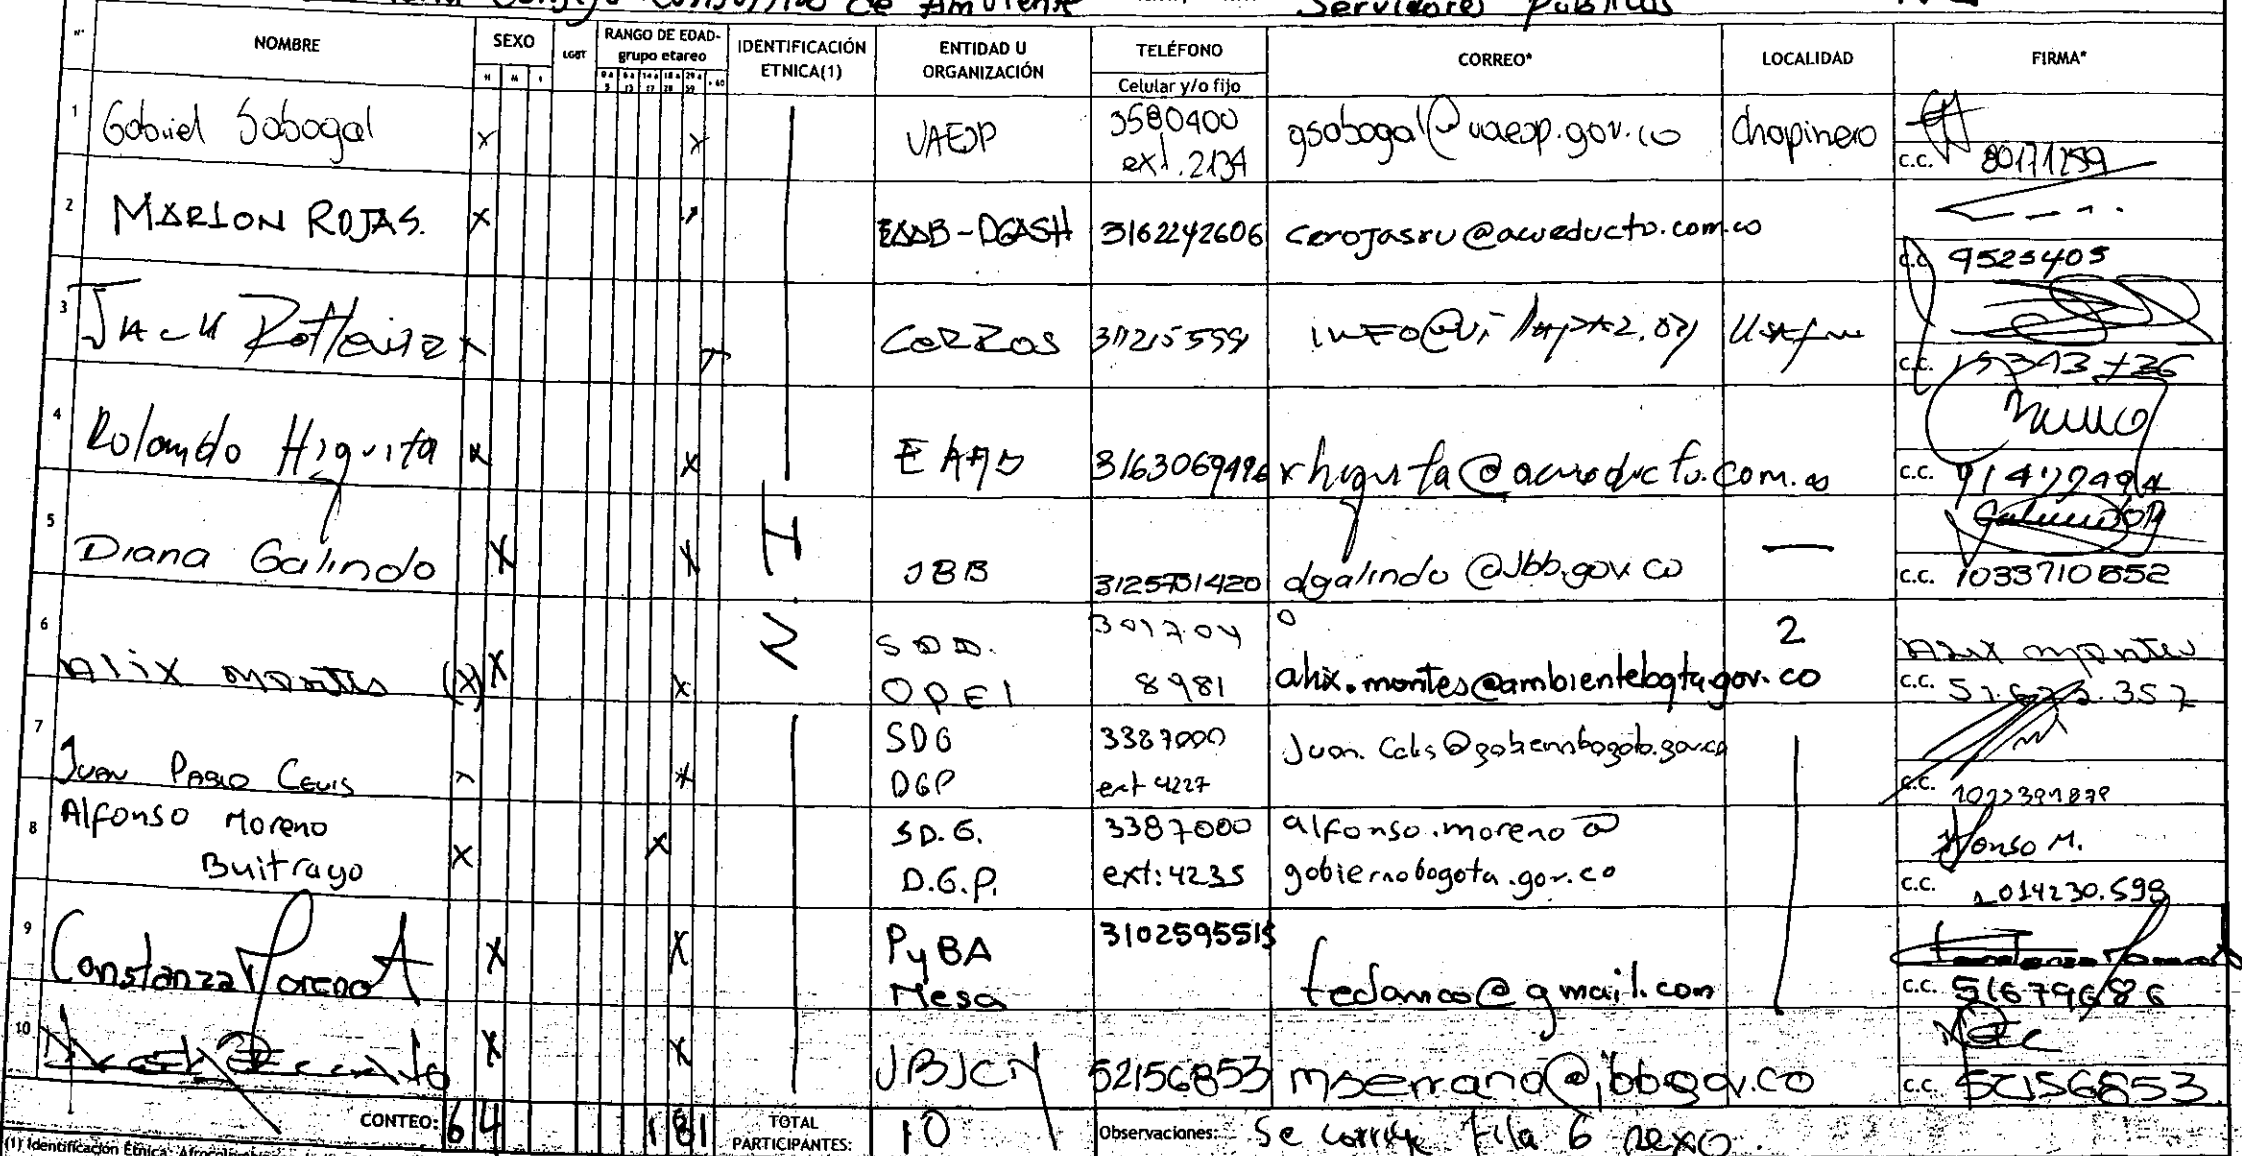 Consejo Consultivo de Ambiente Servidores Públicos
N° NOMBRE SEXO LGBT RANGO DE EDAD- grupo etareo IDENTIFICACIÓN ETNICA(1) ENTIDAD U ORGANIZACIÓN TELÉFONO CORREO* LOCALIDAD FIRMA*
H M I 0 a 5 6 a 13 14 a 17 18 a 28 29 a 59 > 60 Celular y/o fijo
1 Gabriel Sabogal X X UAESP 3580400 ext. 2134 gsabogal@uaesp.gov.co Chapinero
c.c. 80171259
2 MARLON ROJAS. X EAAB-DGASH 3162242606 cerojasru@acueducto.com.co
c.c. 9523405
3 JACK X CERROS
c.c.
4 Rolando Higuita X X EAAB 3163069496 rhiguita@acueducto.com.co
c.c.
5 Diana Galindo X X JBB 3125731420 dgalindo@Jbb.gov.co —
c.c. 1033710652
6 Alix montes (X) X X SDA. OPEL 301704 8981 alix.montes@ambientebogta.gov.co 2 Alix montes
c.c.
7 Juan Pablo Celis X SDG DGP 3387000 ext 4227 Juan.Celis@gobiernobogota.gov.co
c.c.
8 Alfonso Moreno Buitrago X X S.D.G. D.G.P. 3387000 ext: 4235 alfonso.moreno@ gobiernobogota.gov.co Alfonso M.
c.c. 1014230.598
9 Constanza Moreno A X X PyBA Mesa 3102595515 tedamco@gmail.com
c.c. 51679686
10 X X JBJCM 52156853 mserrano@jbb.gov.co
c.c. 52156853
CONTEO: 6 4 1 8 1 TOTAL PARTICIPANTES: 10 Observaciones: Se corrige fila 6 sexo.
(1) Identificación Étnica: